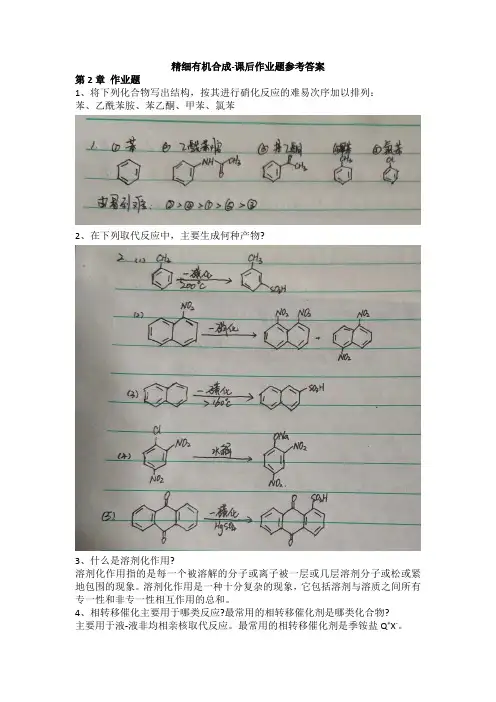 精细有机合成-课后作业题参考答案
第2章 作业题
1、将下列化合物写出结构，按其进行硝化反应的难易次序加以排列：
苯、乙酰苯胺、苯乙酮、甲苯、氯苯
1. ① 苯 ② 乙酰苯胺 ③ 苯乙酮 ④ 甲苯 ⑤ 氯苯
NH CH3 O CH3 O CH3 Cl
由易到难： ②>④>①>⑤>③
2、在下列取代反应中，主要生成何种产物？
2 (1) CH3 一磺化 200℃ CH3 SO3H
(2) NO2 一硝化 NO2 NO2 + NO2 NO2
(3) 一磺化 >160℃ SO3H
(4) Cl NO2 NO2 水解 ONa NO2 NO2
(5) O O 一磺化 HgSO4 O SO3H O
3、什么是溶剂化作用?
溶剂化作用指的是每一个被溶解的分子或离子被一层或几层溶剂分子或松或紧
地包围的现象。溶剂化作用是一种十分复杂的现象，它包括溶剂与溶质之间所有
专一性和非专一性相互作用的总和。
4、相转移催化主要用于哪类反应?最常用的相转移催化剂是哪类化合物?
主要用于液-液非均相亲核取代反应。最常用的相转移催化剂是季铵盐 Q⁺X⁻。